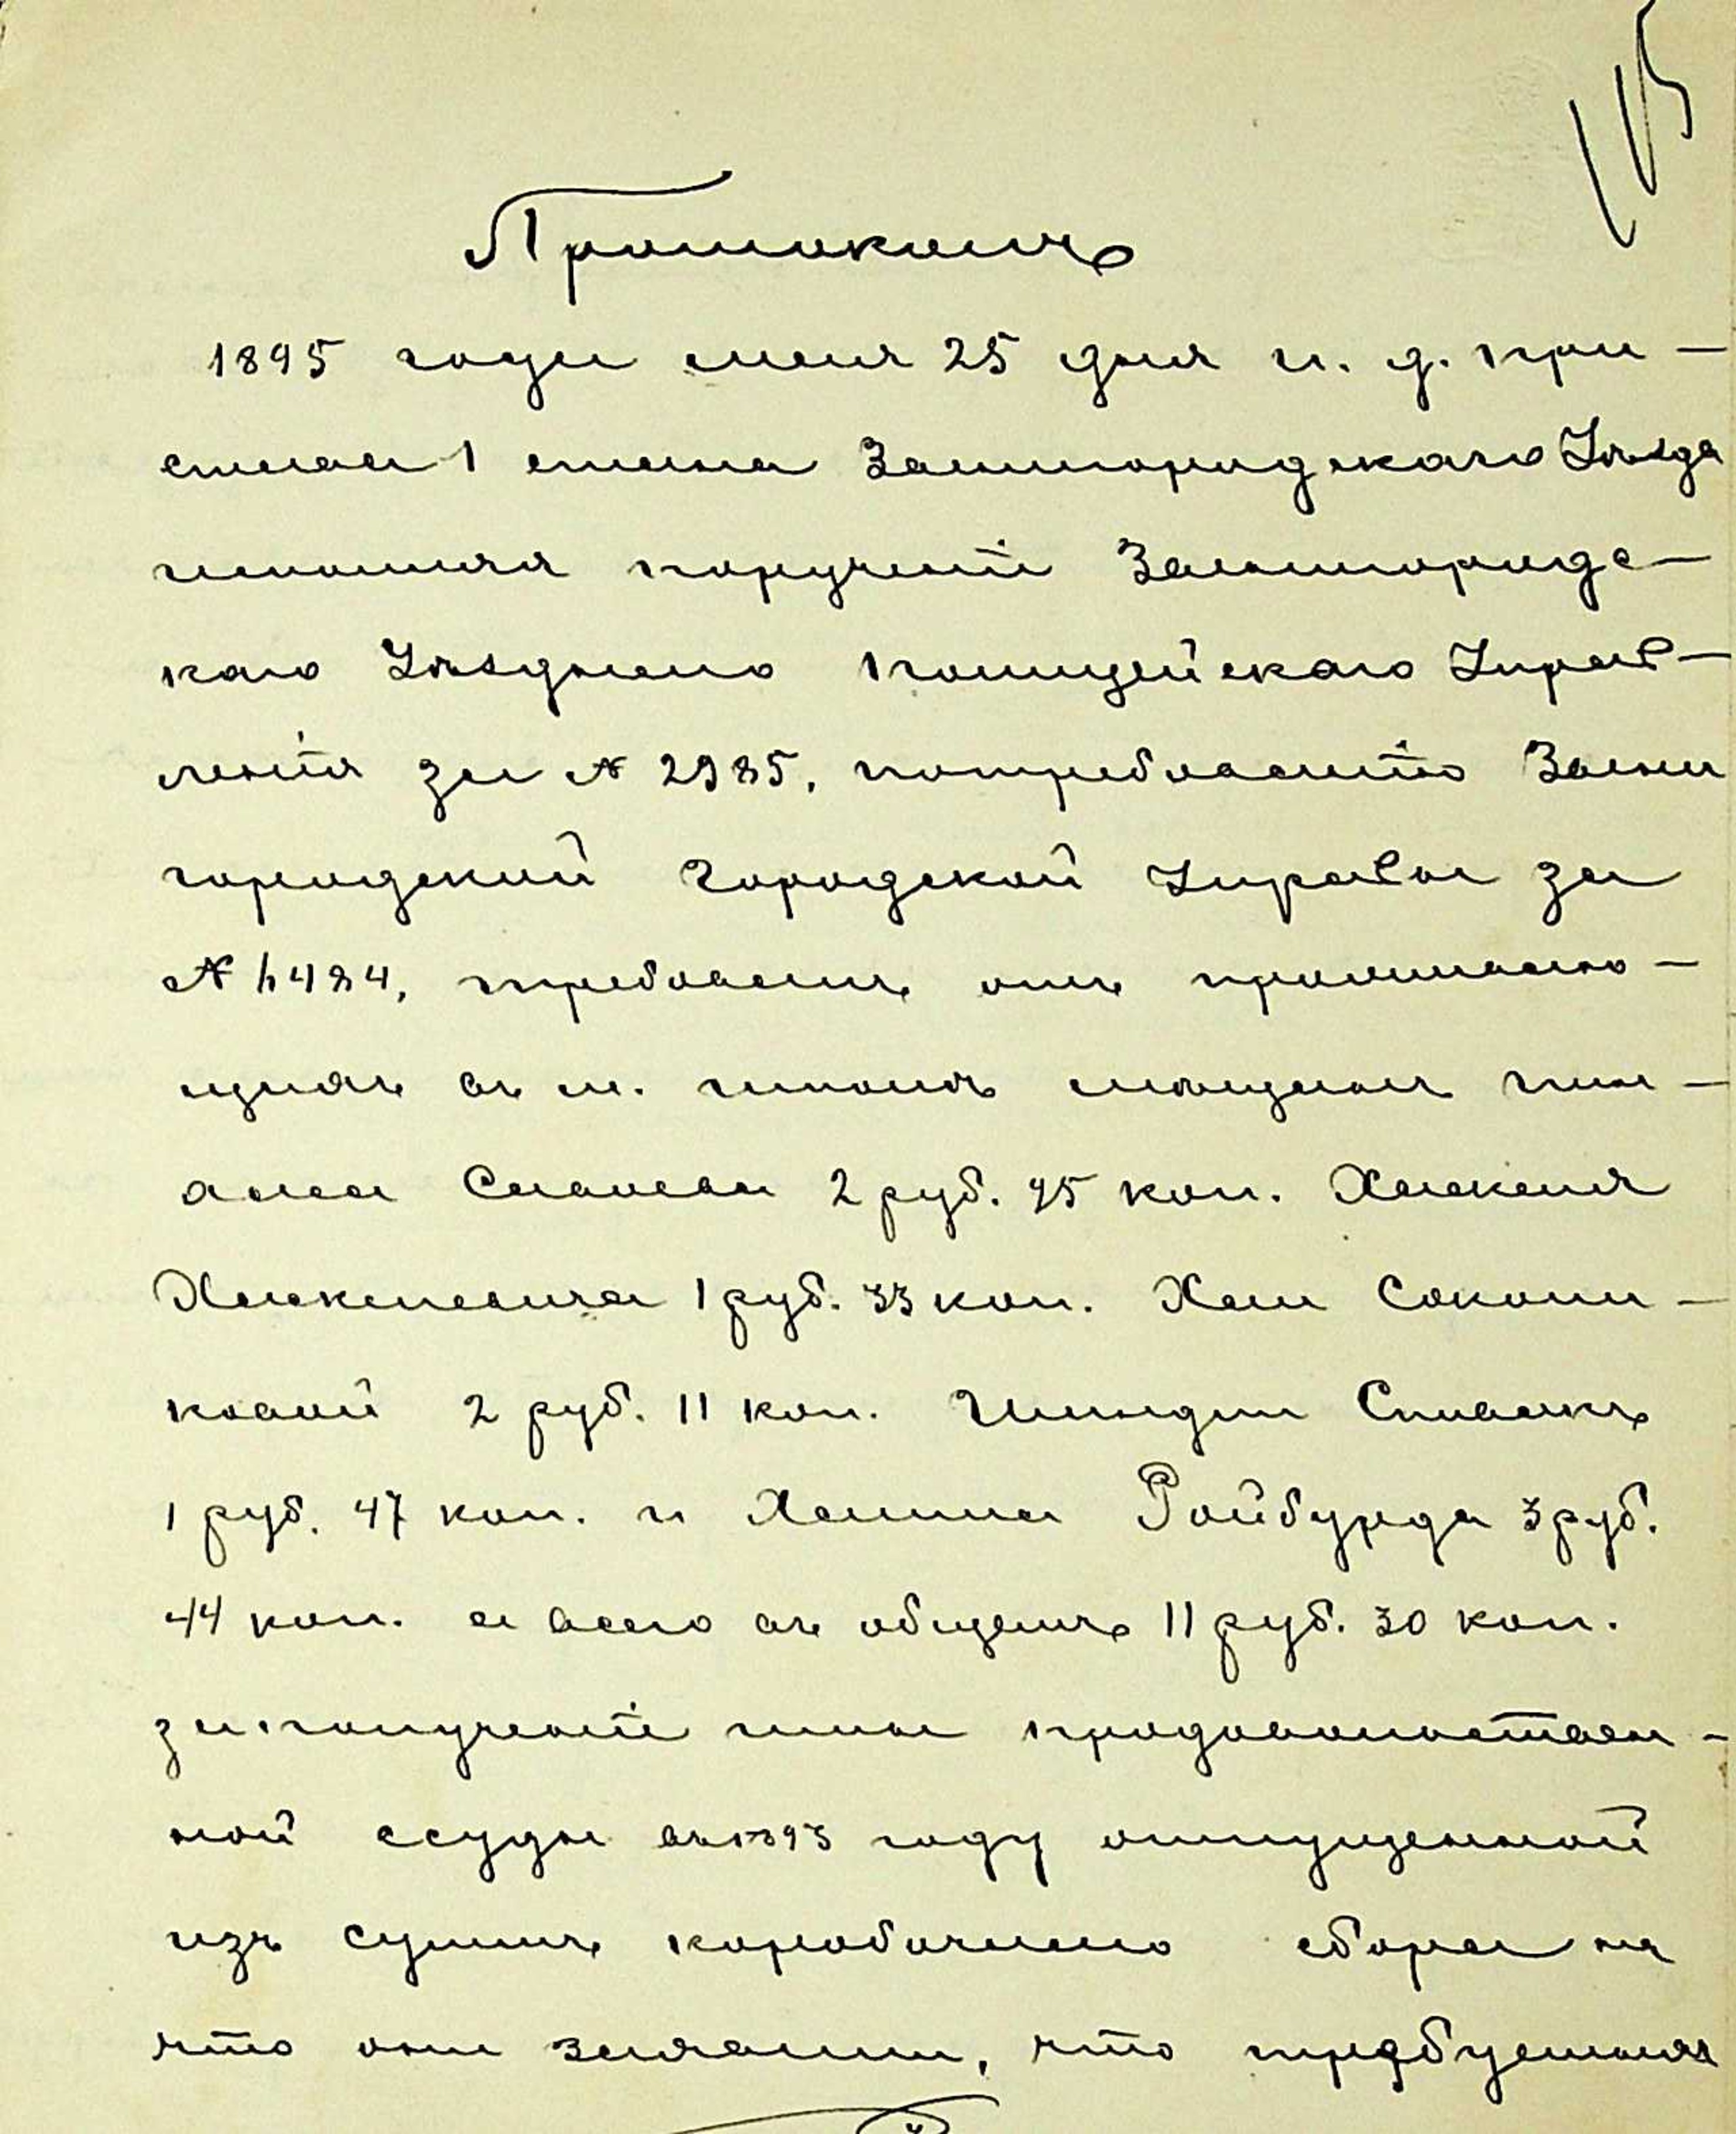 115
Протоколъ
1895 года мая 25 дня и. д. при-
става 1 стана Звенигородскаго Уѣзда
исполняя порученіе Звенигородс-
каго Уѣзднаго Полицейскаго Управ-
ленія за № 2985, потребованію Звени
городской Городской Управы за
№ 6484, требовалъ отъ проживаю-
щихъ въ м. мѣщанъ
Спивака 2 руб. 95 коп. Хаскеля
Хаскелевича 1 руб. 33 коп. Хаи Соколи-
ковой 2 руб. 11 коп. Шиндли Спивакъ
1 руб. 47 коп. и Хаима Ройбурда 3 руб.
44 коп. а всего въ общемъ 11 руб. 30 коп.
за полученіе ими продовольствен-
ной ссуды въ 1893 году отпущенной
изъ суммъ коробочнаго сбора на
что они заявили, что требуемыя